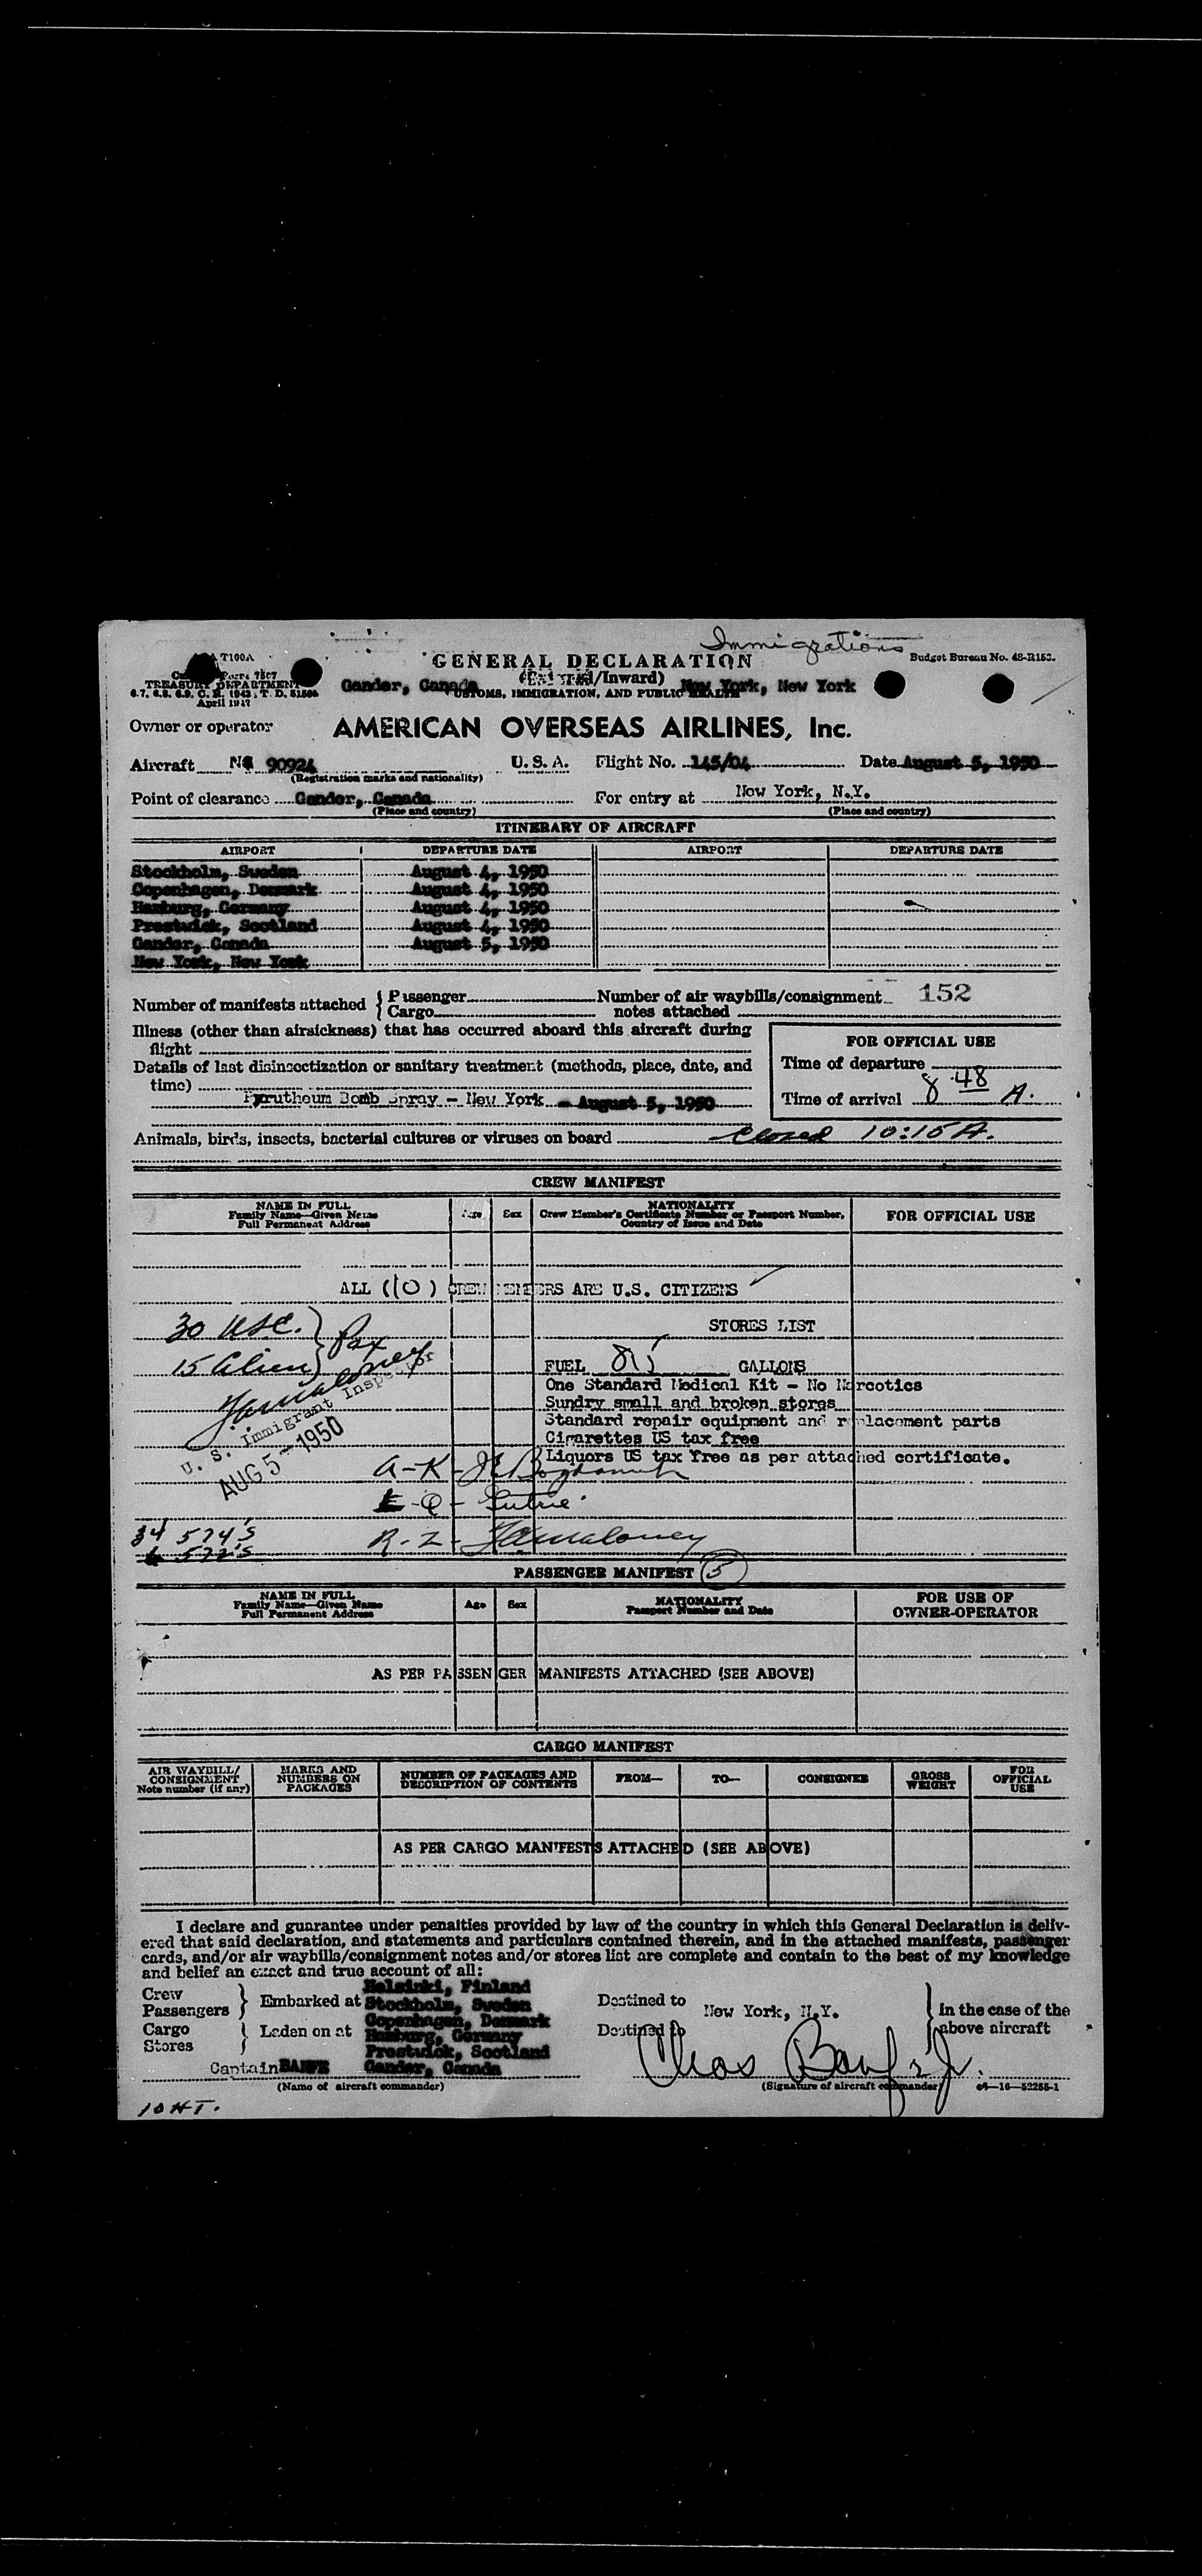 Immigrations
T100A
GENERAL DECLARATION
Budget Bureau No. 48-R153.
Form 7507
TREASURY DEPARTMENT
April 1947
(Outward/Inward)
Gander, Canada
New York, New York
CUSTOMS, IMMIGRATION, AND PUBLIC HEALTH
Owner or operator AMERICAN OVERSEAS AIRLINES, Inc.
Aircraft 90924 U. S. A. Flight No. 145/04 Date August 5, 1950
(Registration marks and nationality)
Point of clearance Gander, Canada For entry at New York, N.Y.
(Place and country) (Place and country)
ITINERARY OF AIRCRAFT
AIRPORT DEPARTURE DATE AIRPORT DEPARTURE DATE
Stockholm, Sweden August 4, 1950
Copenhagen, Denmark August 4, 1950
Hamburg, Germany August 4, 1950
Prestwick, Scotland August 4, 1950
Gander, Canada August 5, 1950
New York, New York
Number of manifests attached { Passenger Number of air waybills/consignment 152
Cargo notes attached
Illness (other than airsickness) that has occurred aboard this aircraft during
flight
FOR OFFICIAL USE
Details of last disinsectization or sanitary treatment (methods, place, date, and
time)
Time of departure
Pyrutheum Bomb Spray - New York - August 5, 1950
Time of arrival 8 48 A.
Animals, birds, insects, bacterial cultures or viruses on board closed 10:15 A.
CREW MANIFEST
NAME IN FULL
Family Name—Given Name
Full Permanent Address
Age Sex
NATIONALITY
Crew Member's Certificate Number or Passport Number,
Country of Issue and Date
FOR OFFICIAL USE
ALL (10) CREW MEMBERS ARE U.S. CITIZENS
30 USC. } Pax
15 Alien
STORES LIST
FUEL 815 GALLONS
One Standard Medical Kit - No Narcotics
Sundry small and broken stores
Standard repair equipment and replacement parts
Cigarettes US tax free
Liquors US tax free as per attached certificate.
U. S. Immigrant Inspector
AUG 5 - 1950
A-K -
-Q -
R-Z -
34 574's
6 572's
PASSENGER MANIFEST (5)
NAME IN FULL
Family Name—Given Name
Full Permanent Address
Age Sex
NATIONALITY
Passport Number and Date
FOR USE OF
OWNER-OPERATOR
AS PER PASSENGER MANIFESTS ATTACHED (SEE ABOVE)
CARGO MANIFEST
AIR WAYBILL/
CONSIGNMENT
Note number (if any)
MARKS AND
NUMBERS ON
PACKAGES
NUMBER OF PACKAGES AND
DESCRIPTION OF CONTENTS
FROM— TO— CONSIGNEE
GROSS
WEIGHT
FOR
OFFICIAL
USE
AS PER CARGO MANIFESTS ATTACHED (SEE ABOVE)
I declare and guarantee under penalties provided by law of the country in which this General Declaration is deliv-
ered that said declaration, and statements and particulars contained therein, and in the attached manifests, passenger
cards, and/or air waybills/consignment notes and/or stores list are complete and contain to the best of my knowledge
and belief an exact and true account of all:
Crew
Passengers } Embarked at
Cargo
Stores } Laden on at
Helsinki, Finland
Stockholm, Sweden
Copenhagen, Denmark
Hamburg, Germany
Prestwick, Scotland
Gander, Canada
Destined to New York, N.Y.
Destined to
} in the case of the
above aircraft
Captain
(Name of aircraft commander)
(Signature of aircraft commander)
16—52255-1
10 HT.